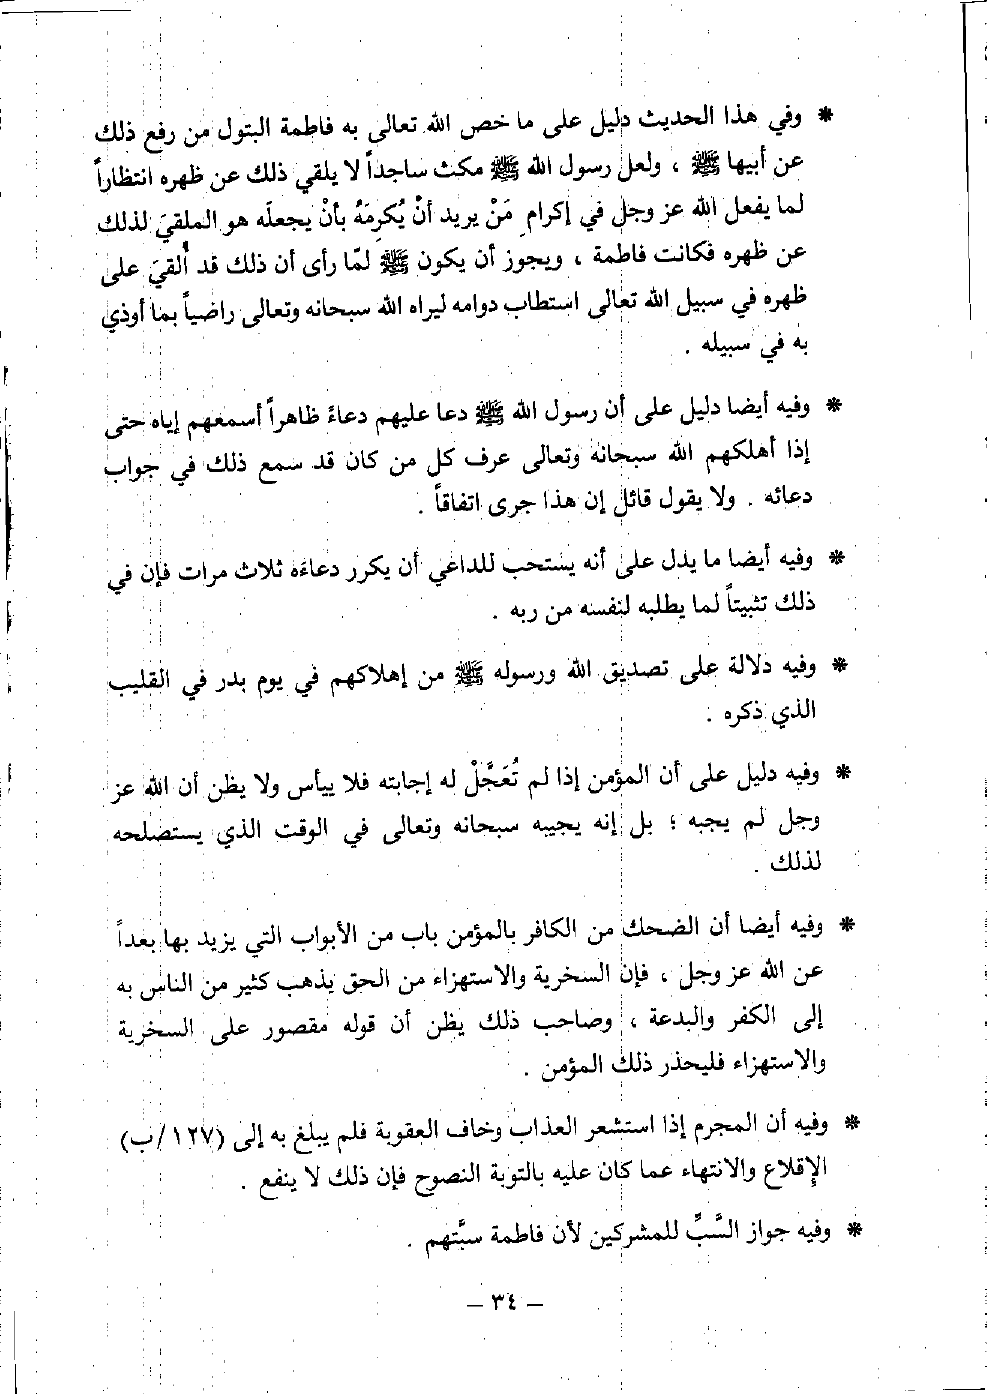 * وفي هذا الحديث دليل على ما خص الله تعالى به فاطمة البتول من رفع ذلك
عن أبيها ﷺ ، ولعل رسول الله ﷺ مكث ساجداً لا يلقي ذلك عن ظهره انتظاراً
لما يفعل الله عز وجل في إكرامِ مَنْ يريد أنْ يُكرِمَهُ بأنْ يجعلَه هو الملقيَ لذلك
عن ظهره فكانت فاطمة ، ويجوز أن يكون ﷺ لمّا رأى أن ذلك قد أُلقيَ على
ظهره في سبيل الله تعالى استطاب دوامه ليراه الله سبحانه وتعالى راضياً بما أوذي
به في سبيله .
* وفيه أيضا دليل على أن رسول الله ﷺ دعا عليهم دعاءً ظاهراً أسمعهم إياه حتى
إذا أهلكهم الله سبحانه وتعالى عرف كل من كان قد سمع ذلك في جواب
دعائه . ولا يقول قائل إن هذا جرى اتفاقاً .
* وفيه أيضا ما يدل على أنه يستحب للداعي أن يكرر دعاءه ثلاث مرات فإن في
ذلك تثبيتاً لما يطلبه لنفسه من ربه .
* وفيه دلالة على تصديق الله ورسوله ﷺ من إهلاكهم في يوم بدر في القليب
الذي ذكره .
* وفيه دليل على أن المؤمن إذا لم تُعَجَّلْ له إجابته فلا ييأس ولا يظن أن الله عز
وجل لم يجبه ؛ بل إنه يجيبه سبحانه وتعالى في الوقت الذي يستصلحه
لذلك .
* وفيه أيضا أن الضحك من الكافر بالمؤمن باب من الأبواب التي يزيد بها بعداً
عن الله عز وجل ، فإن السخرية والاستهزاء من الحق يذهب كثير من الناس به
إلى الكفر والبدعة ، وصاحب ذلك يظن أن قوله مقصور على السخرية
والاستهزاء فليحذر ذلك المؤمن .
* وفيه أن المجرم إذا استشعر العذاب وخاف العقوبة فلم يبلغ به إلى (١٢٧/ب)
الإقلاع والانتهاء عما كان عليه بالتوبة النصوح فإن ذلك لا ينفع .
* وفيه جواز السَّبِّ للمشركين لأن فاطمة سبَّتهم .
– ٣٤ –